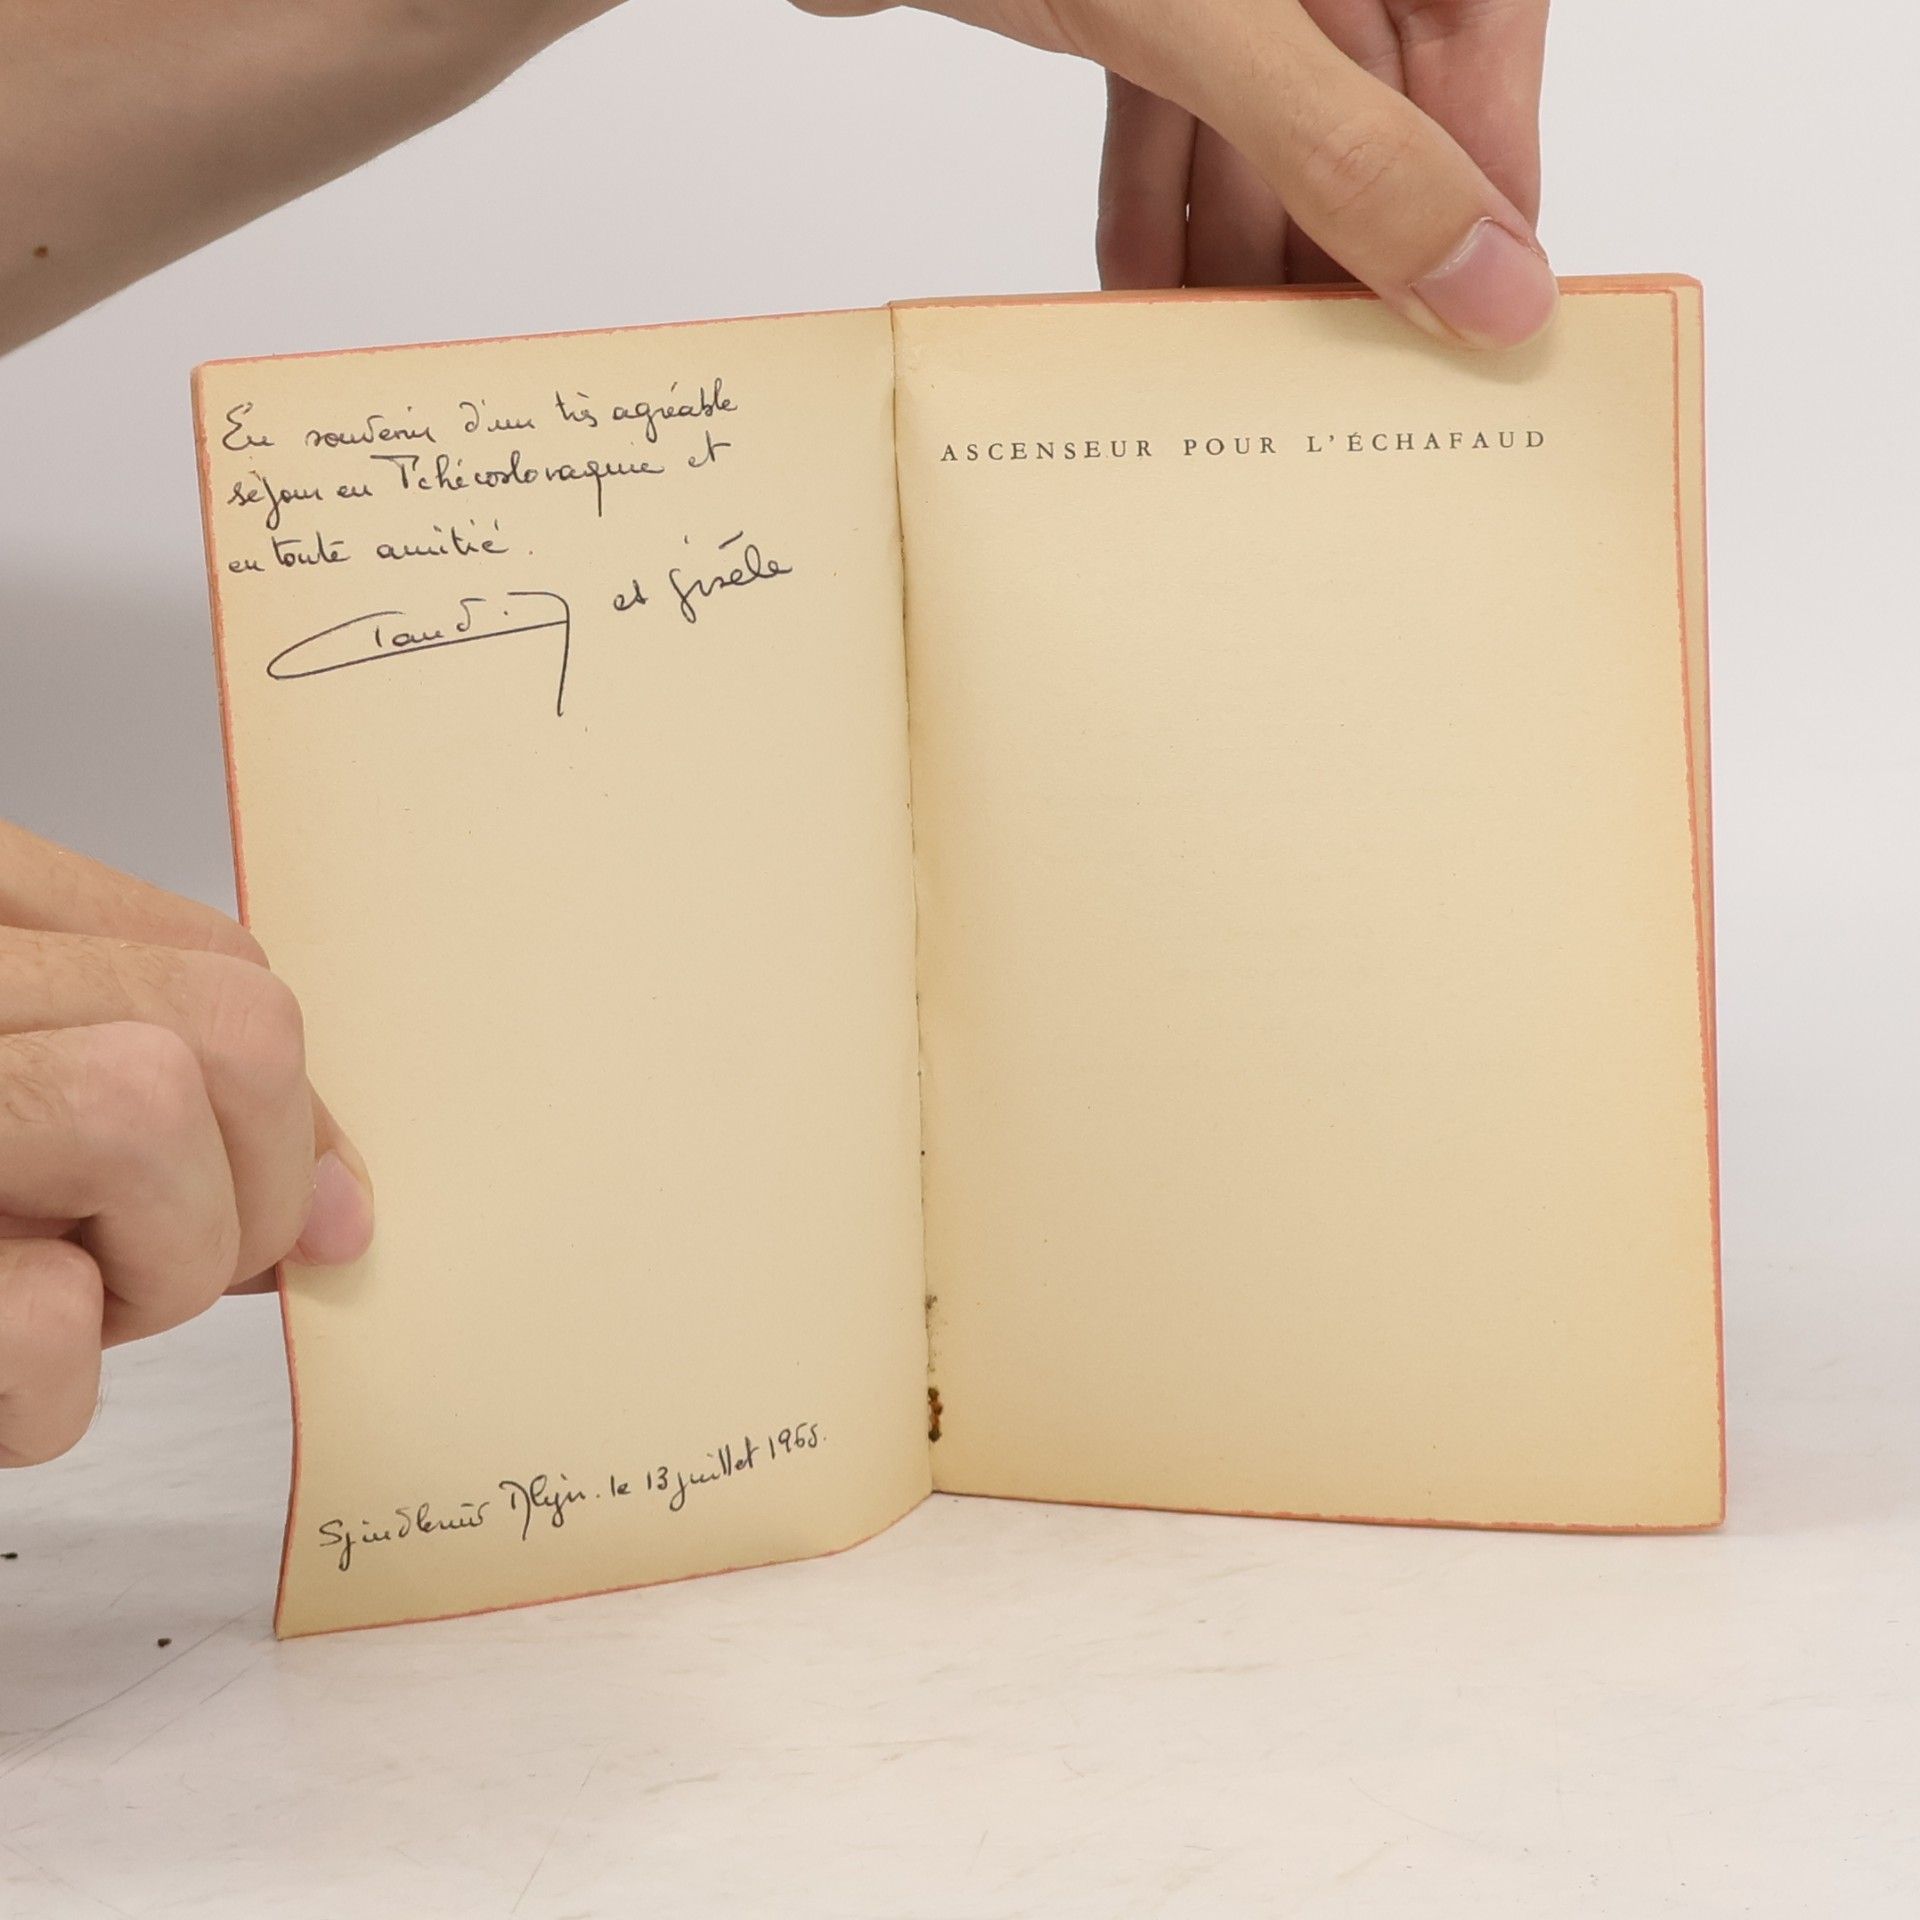 En souvenir d'un très agréable
séjour en Tchécoslovaquie et
en toute amitié.
et gisèle
le 13 juillet 1965.
ASCENSEUR POUR L'ÉCHAFAUD